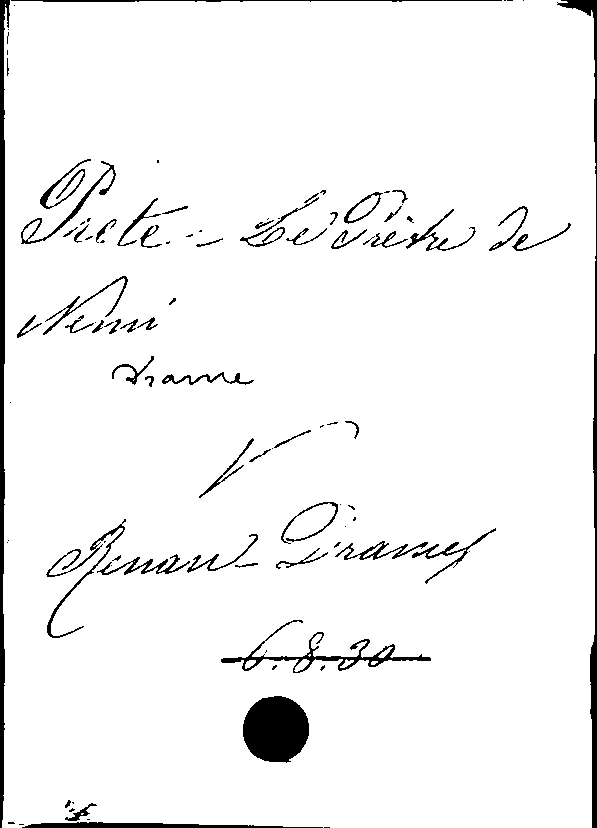 Prete - Le Prêtre de
Nemi
drame
V
Renan - Drames
6.8.30